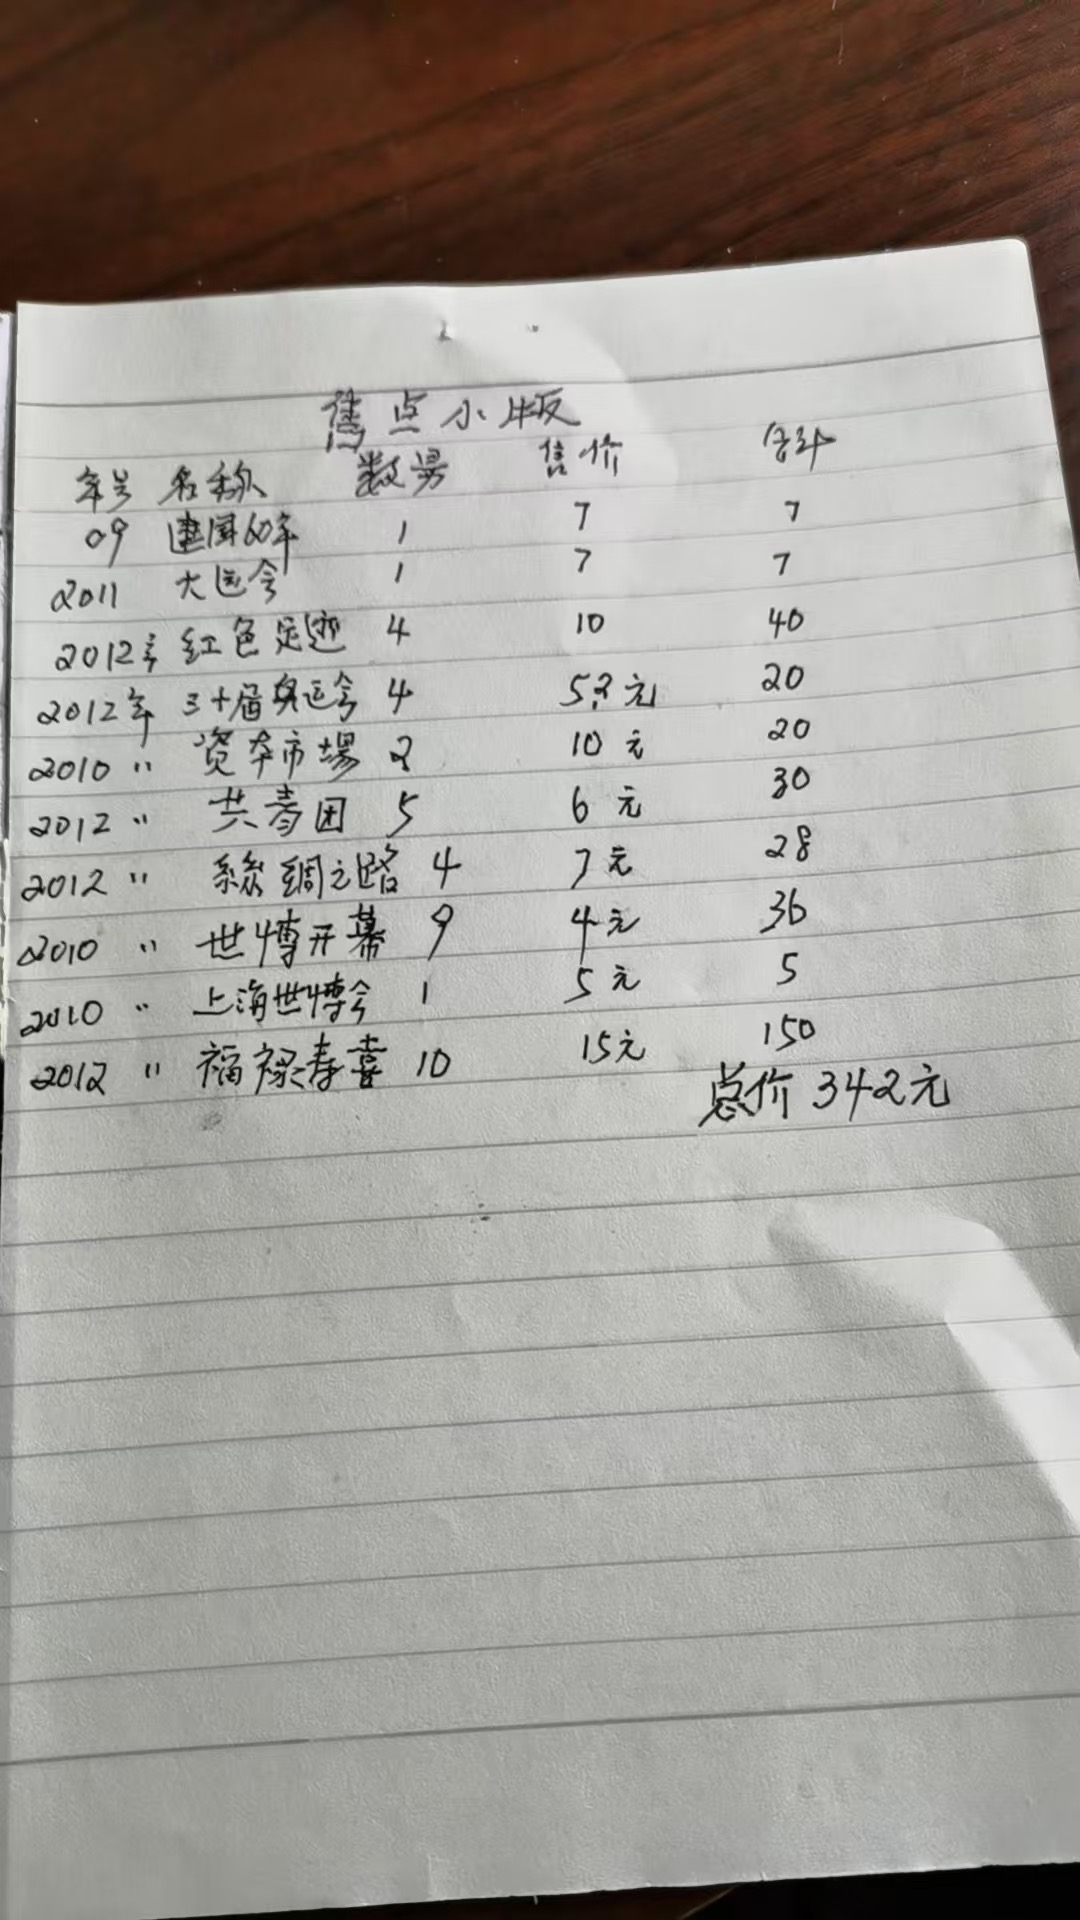 舊点小版
年号 名称 数另 售价 合计
09 建国60年 1 7 7
2011 大运会 1 7 7
2012年 红色足迹 4 10 40
2012年 三十届奥运会 4 5.2元 20
2010 〃 资本市場 2 10元 20
2012 〃 共青团 5 6元 30
2012 〃 絲綢之路 4 7元 28
2010 〃 世博开幕 9 4元 36
2010 〃 上海世博会 1 5元 5
2012 〃 福禄寿喜 10 15元 150
总价 342元